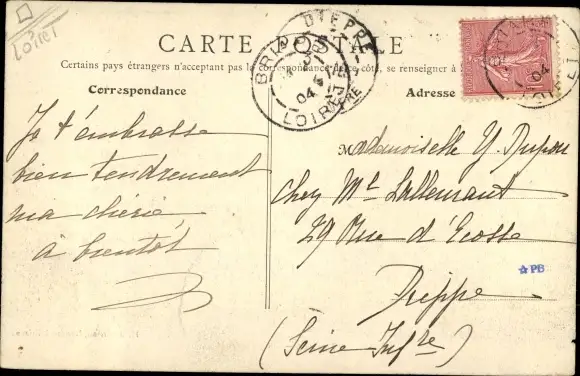 Loiret
CARTE POSTALE
Certains pays étrangers n'acceptant pas la correspondance de ce côté, se renseigner à
Correspondance
Adresse
DIEPPE
04
LOIRET
04
Je t'embrasse
bien tendrement
ma chérie
à bientôt
Mademoiselle Y. Dupon
chez Mr Lallemant
29 Rue d'Ecosse
Dieppe
(Seine Infre)
PB